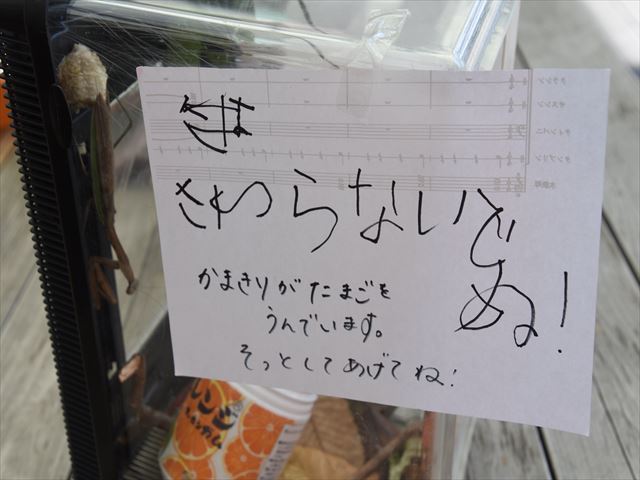 さわらないで
ぬ!
かまきりがたまごを
うんでいます。
そっとしてあげてね!
レンジ